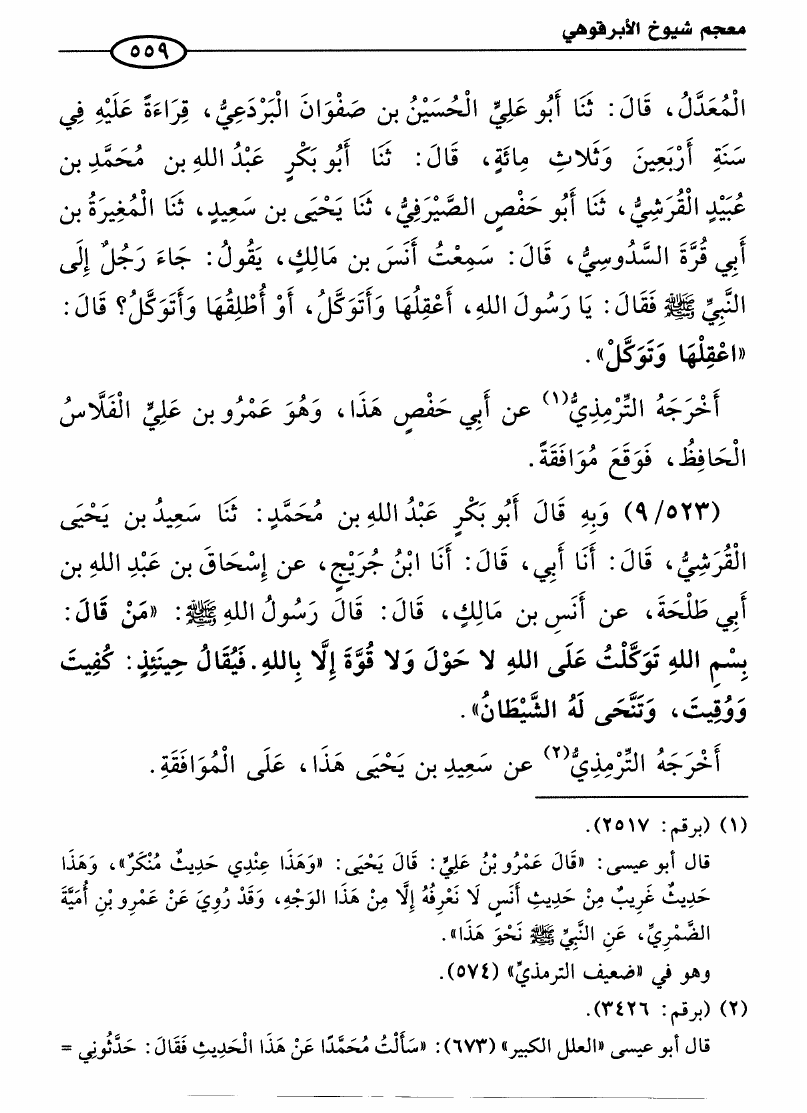 معجم شيوخ الأبرقوهي
٥٥٩
الْمُعَدَّلُ، قَالَ: ثَنَا أَبُو عَلِيٍّ الْحُسَيْنُ بن صَفْوَانَ الْبَرْدَعِيُّ، قِرَاءَةً عَلَيْهِ فِي
سَنَةِ أَرْبَعِينَ وَثَلاثِ مِائَةٍ، قَالَ: ثَنَا أَبُو بَكْرٍ عَبْدُ اللهِ بن مُحَمَّدِ بن
عُبَيْدٍ الْقُرَشِيُّ، ثَنَا أَبُو حَفْصٍ الصَّيْرَفِيُّ، ثَنَا يَحْيَى بن سَعِيدٍ، ثَنَا الْمُغِيرَةُ بن
أَبِي قُرَّةَ السَّدُوسِيُّ، قَالَ: سَمِعْتُ أَنَسَ بن مَالِكٍ، يَقُولُ: جَاءَ رَجُلٌ إِلَى
النَّبِيِّ ﷺ فَقَالَ: يَا رَسُولَ اللهِ، أَعْقِلُهَا وَأَتَوَكَّلُ، أَوْ أُطْلِقُهَا وَأَتَوَكَّلُ؟ قَالَ:
«اعْقِلْهَا وَتَوَكَّلْ».
أَخْرَجَهُ التِّرْمِذِيُّ(١) عن أَبِي حَفْصٍ هَذَا، وَهُوَ عَمْرُو بن عَلِيٍّ الْفَلَّاسُ
الْحَافِظُ، فَوَقَعَ مُوَافَقَةً.
(٩/٥٢٣) وَبِهِ قَالَ أَبُو بَكْرٍ عَبْدُ اللهِ بن مُحَمَّدٍ: ثَنَا سَعِيدُ بن يَحْيَى
الْقُرَشِيُّ، قَالَ: أَنَا أَبِي، قَالَ: أَنَا ابْنُ جُرَيْجٍ، عن إِسْحَاقَ بن عَبْدِ اللهِ بن
أَبِي طَلْحَةَ، عن أَنَسِ بن مَالِكٍ، قَالَ: قَالَ رَسُولُ اللهِ ﷺ: «مَنْ قَالَ:
بِسْمِ اللهِ تَوَكَّلْتُ عَلَى اللهِ لا حَوْلَ وَلا قُوَّةَ إِلَّا بِاللهِ. فَيُقَالُ حِينَئِذٍ: كُفِيتَ
وَوُقِيتَ، وَتَنَّحَى لَهُ الشَّيْطَانُ».
أَخْرَجَهُ التِّرْمِذِيُّ(٢) عن سَعِيدِ بن يَحْيَى هَذَا، عَلَى الْمُوَافَقَةِ.
(١) (برقم: ٢٥١٧).
قال أبو عيسى: «قَالَ عَمْرُو بْنُ عَلِيٍّ: قَالَ يَحْيَى: «وَهَذَا عِنْدِي حَدِيثٌ مُنْكَرٌ»، وَهَذَا
حَدِيثٌ غَرِيبٌ مِنْ حَدِيثِ أَنَسٍ لَا نَعْرِفُهُ إِلَّا مِنْ هَذَا الوَجْهِ، وَقَدْ رُوِيَ عَنْ عَمْرِو بْنِ أُمَيَّةَ
الضَّمْرِيِّ، عَنِ النَّبِيِّ ﷺ نَحْوَ هَذَا».
وهو في «ضعيف الترمذيِّ» (٥٧٤).
(٢) (برقم: ٣٤٢٦).
قال أبو عيسى «العلل الكبير» (٦٧٣): «سَأَلْتُ مُحَمَّدًا عَنْ هَذَا الْحَدِيثِ فَقَالَ: حَدَّثُونِي =